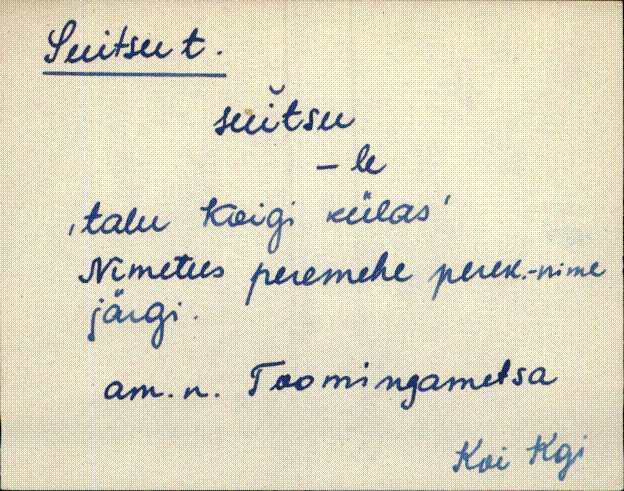 Suitsu t.
suĭtsu
- le
'talu Koigi külas'
Nimetus peremehe perek.-nime
järgi.
am. n. Toomingametsa
Koi Kgi